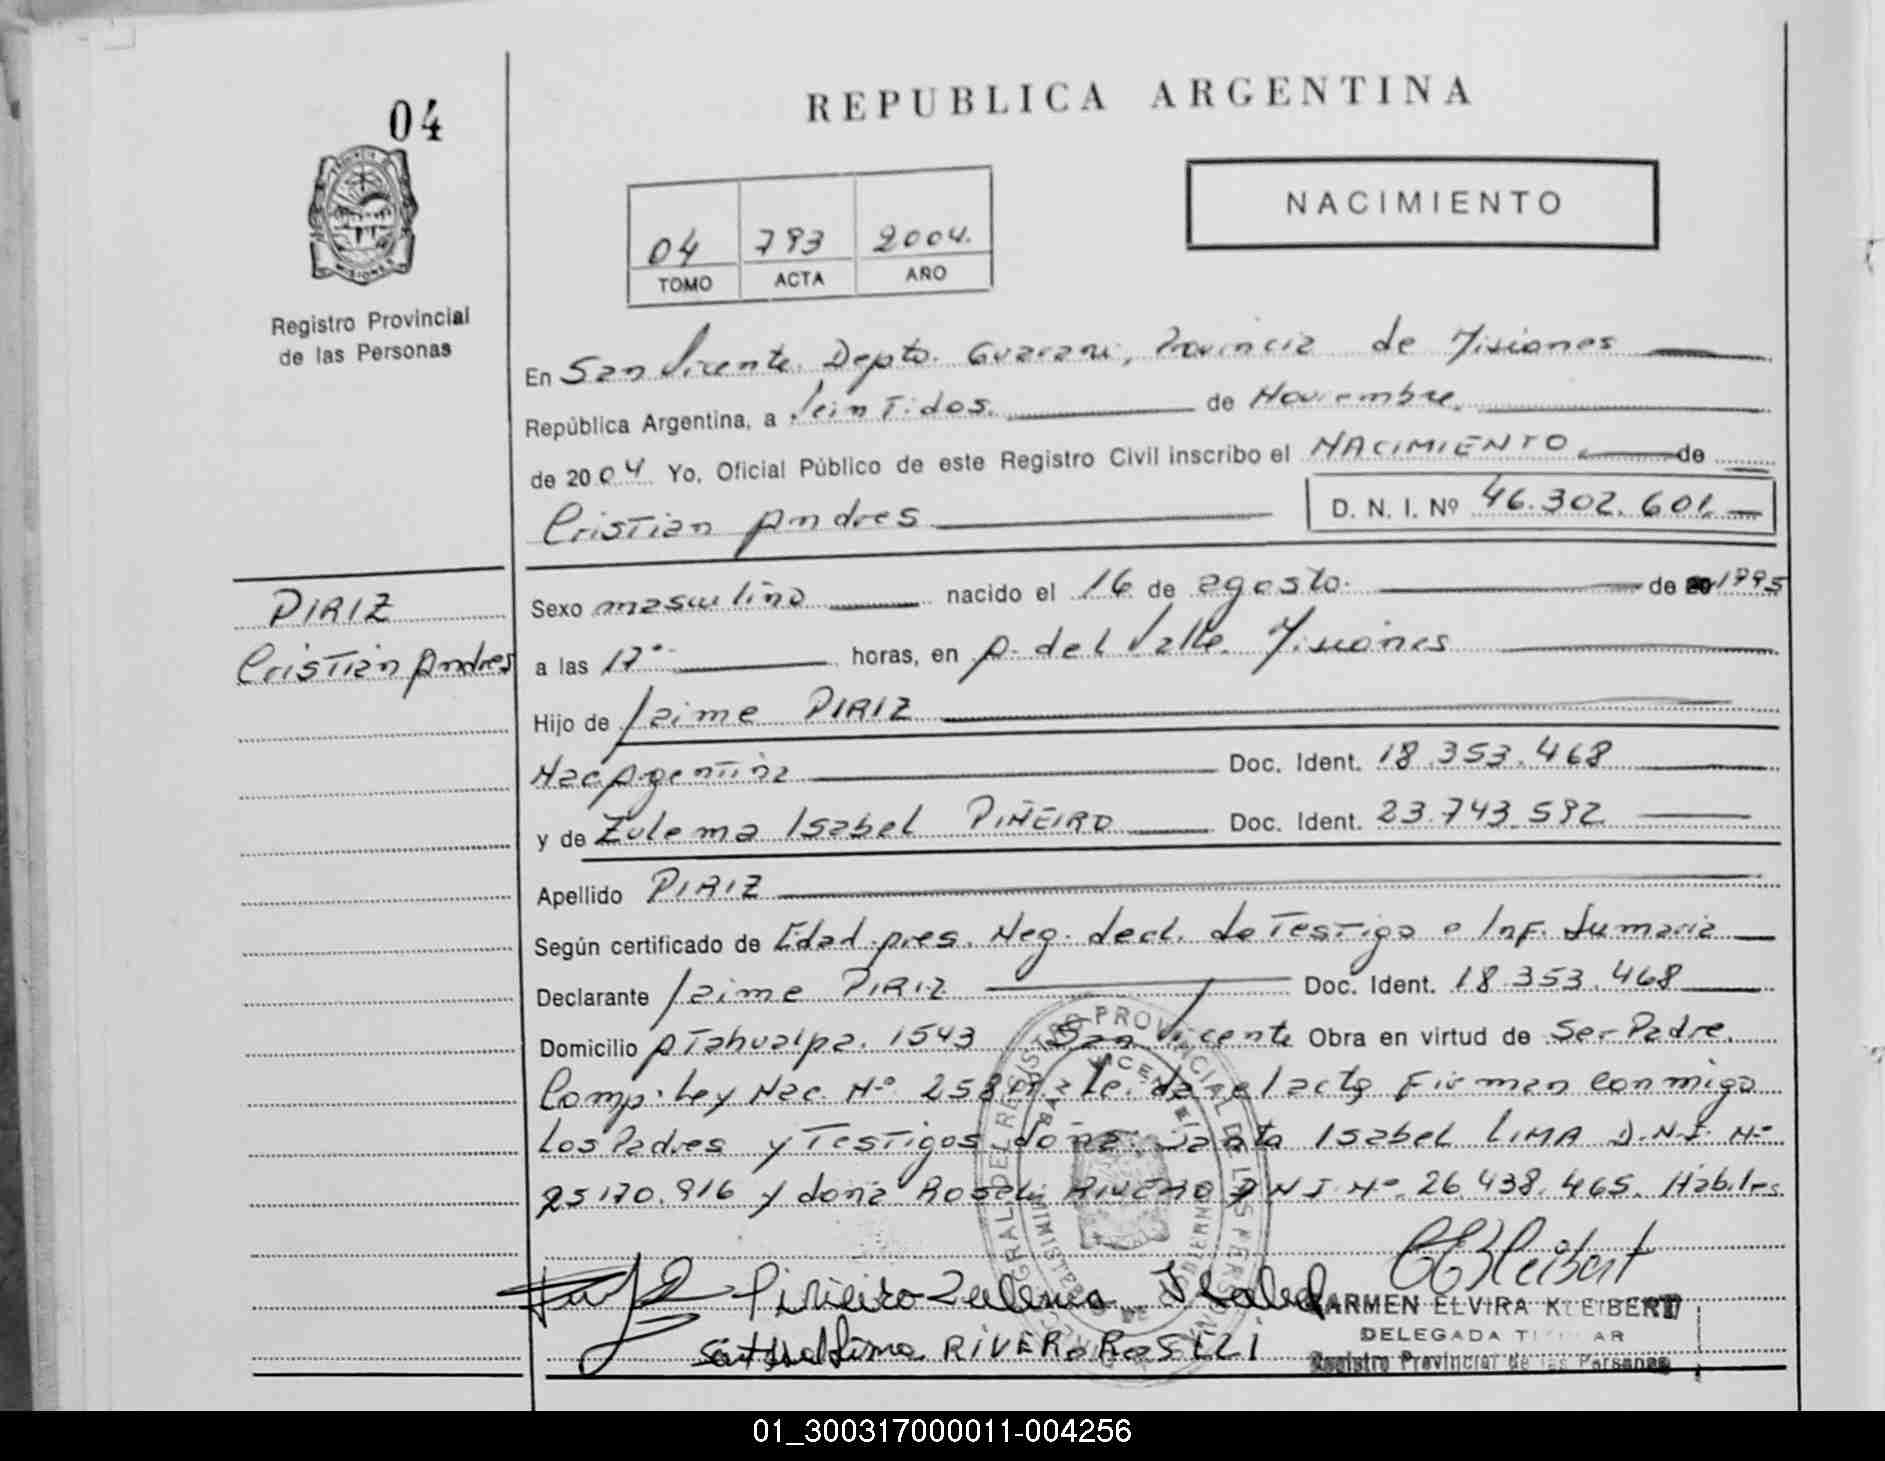 04
REPUBLICA ARGENTINA
NACIMIENTO
04 793 2004.
TOMO ACTA AÑO
PROVINCIA DE MISIONES
Registro Provincial
de las Personas
En San Vicente. Depto. Guarani, Provincia de Misiones
República Argentina, a Veintidos. de Noviembre.
de 2004 Yo, Oficial Público de este Registro Civil inscribo el NACIMIENTO de
Cristian Andres D. N. I. Nº 46.302.601.
PIRIZ
Cristian Andres
Sexo masculino nacido el 16 de agosto. de 20 1995
a las 17º horas, en A. del Valle. Misiones
Hijo de Jaime PIRIZ
Nac Argentina Doc. Ident. 18.353.468
y de Zulema Isabel PIÑEIRO Doc. Ident. 23.743.592
Apellido PIRIZ
Según certificado de Edad pres. Neg. decl. de Testigo e Inf. Sumaria
Declarante Jaime PIRIZ Doc. Ident. 18.353.468
Domicilio Atahualpa. 1543 San Vicente Obra en virtud de Ser Padre.
Comp. Ley Nac. Nº el acta Firman Conmigo
Los Padres y Testigos doña: Santa Isabel LIMA D.N.I. Nº
25.170.916 y doña Roseli D N I Nº. 26.438.465. Habiles
Piñeiro Zulema Isabel
RIVERO ROSELI
CARMEN ELVIRA KLEIBERT
DELEGADA TITULAR
Registro Provincial de las Personas
01_300317000011-004256